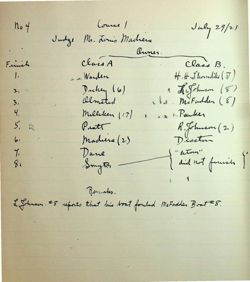 No 4 Course 1 July 29/21
Judge Mr. Louis Madeira
Owner.
Finish Class A Class B.
1. Warden H. H. (8)
2. Dickey (6) L. Johnson (8)
3. Olmsted McFadden (8)
4. Milliken (17) Parker
5. Pratt R. Johnson (2)
6. Madeira (2) Deacon
7. Dane
8. Smyth did not finish
Remarks.
L. Johnson #8 reports that his boat fouled McFadden Boat #8.